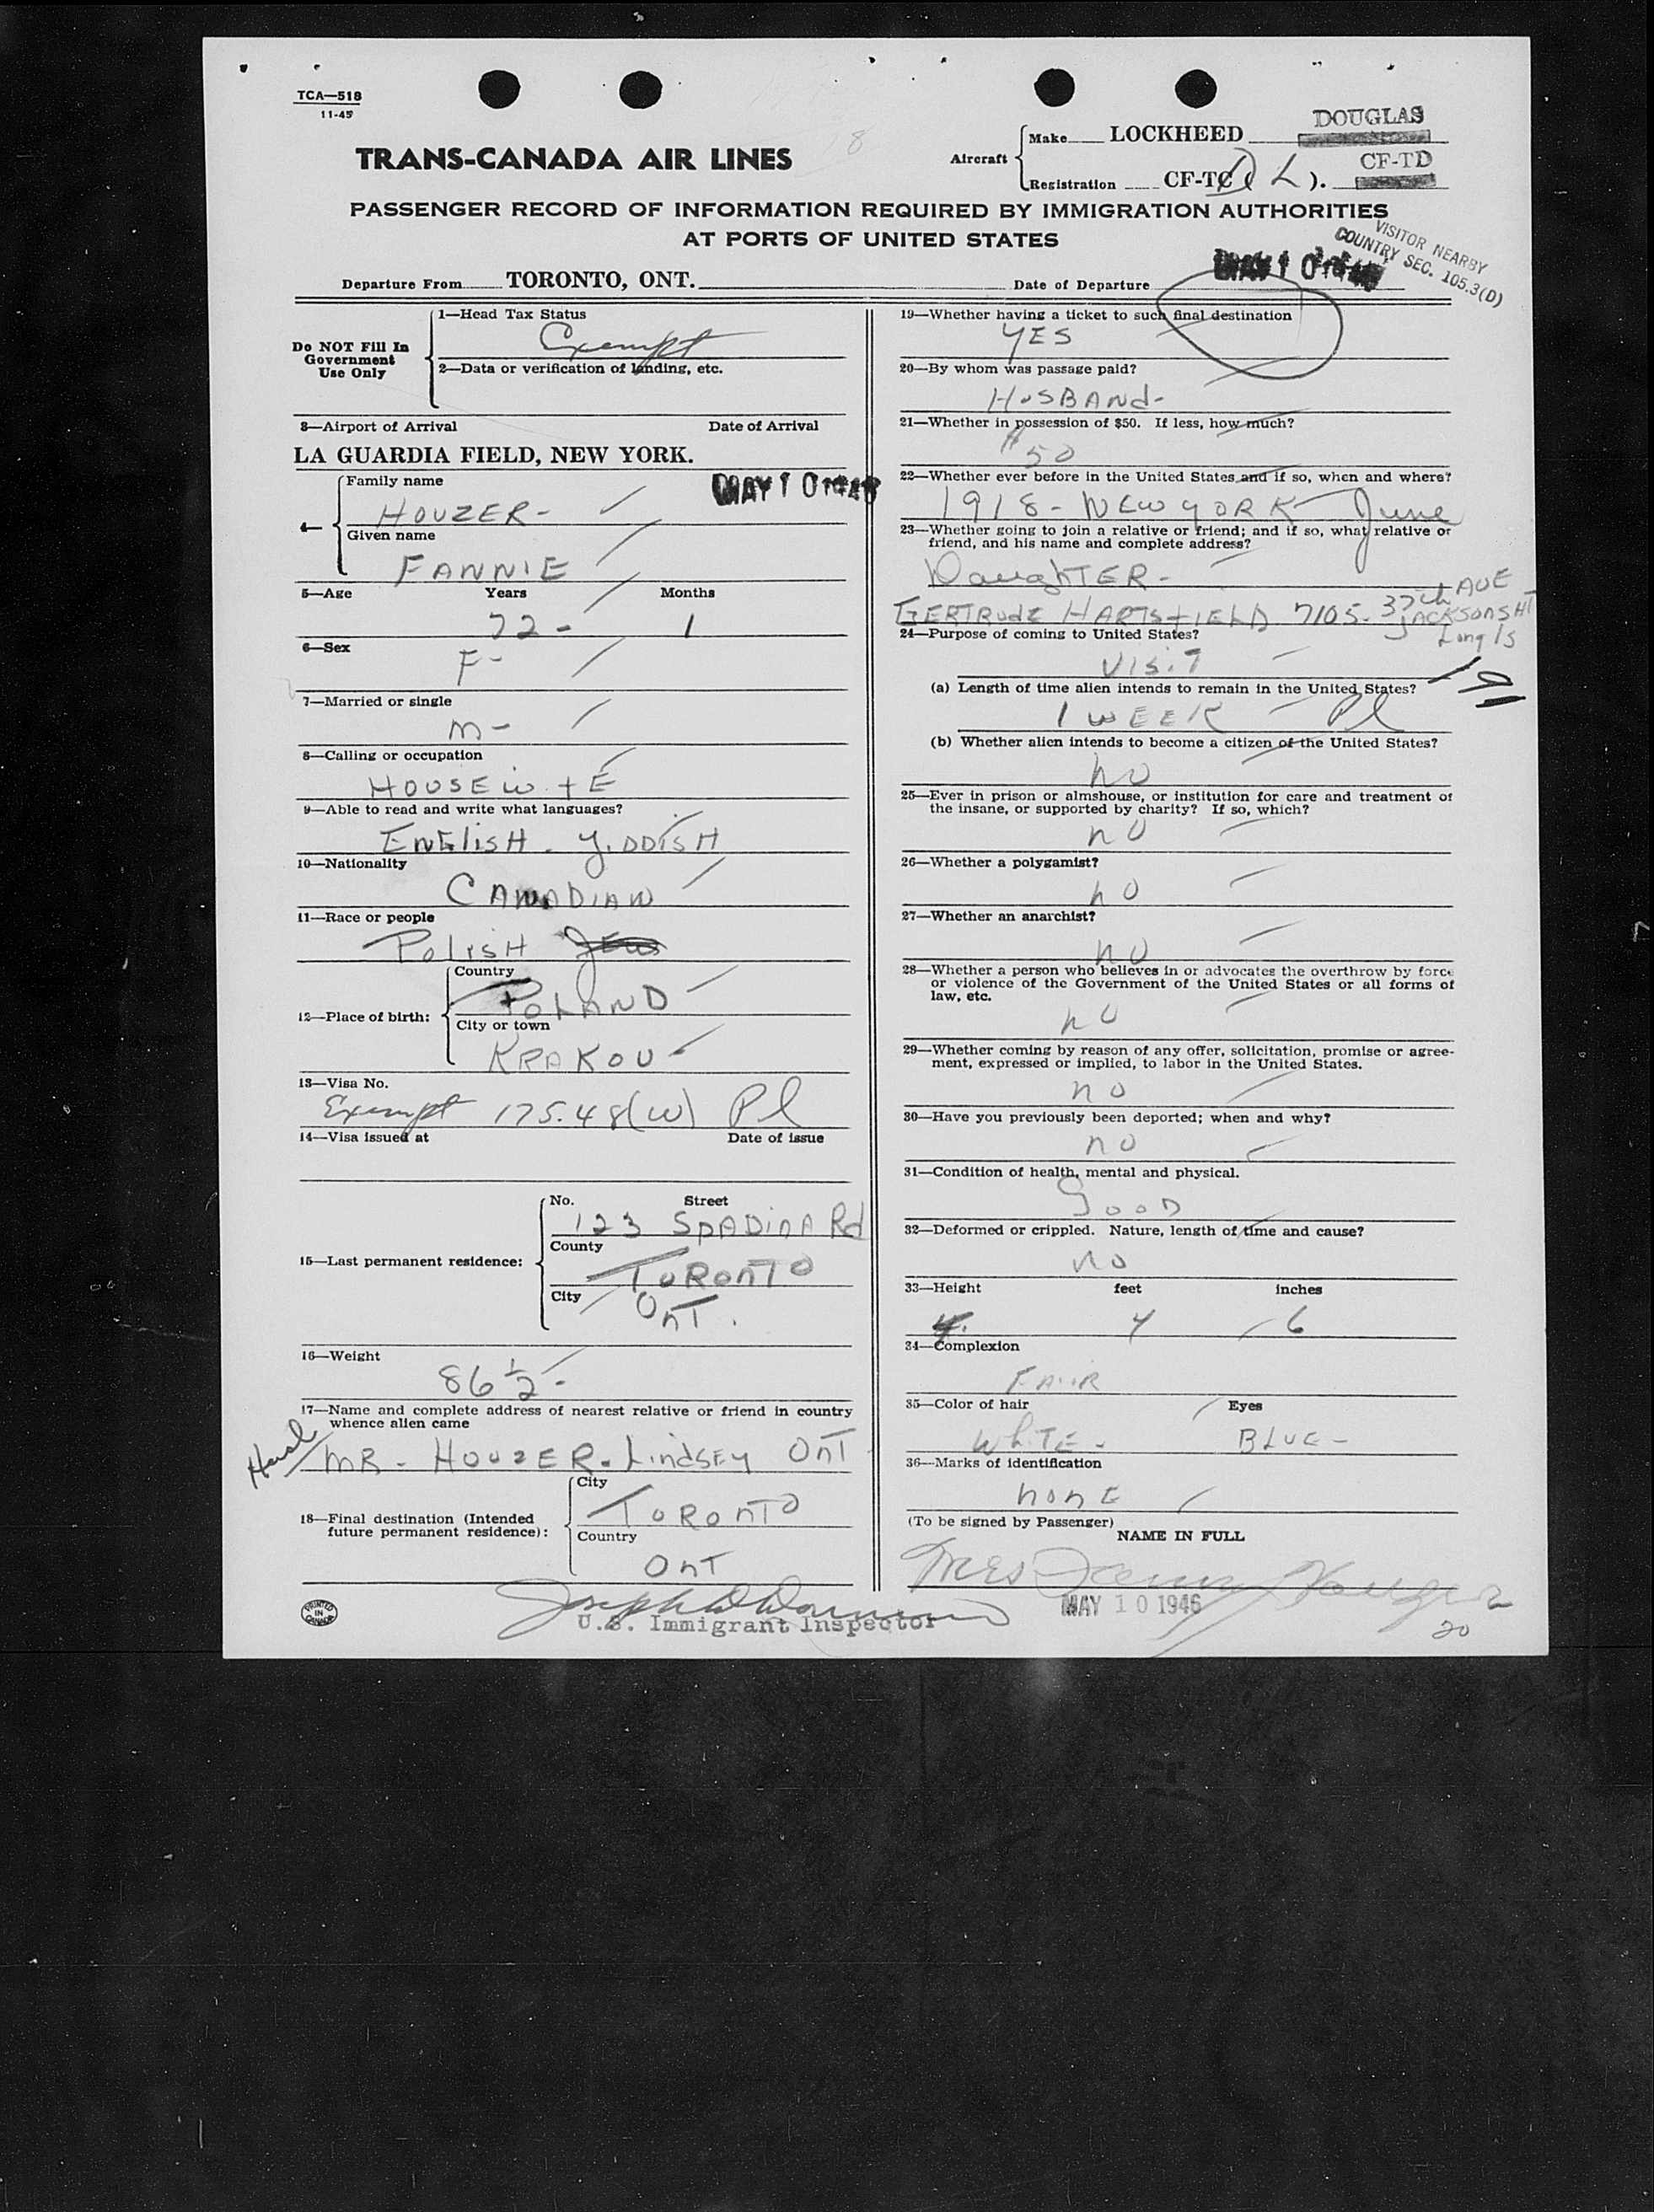 TCA—518
11-45
TRANS-CANADA AIR LINES
Aircraft
Make LOCKHEED DOUGLAS
Registration CF-TC ( D L ). CF-TD
PASSENGER RECORD OF INFORMATION REQUIRED BY IMMIGRATION AUTHORITIES
AT PORTS OF UNITED STATES
VISITOR NEARBY
COUNTRY SEC. 105.3(D)
Departure From TORONTO, ONT.
Date of Departure MAY 10 1946
Do NOT Fill In
Government
Use Only
1—Head Tax Status
Exempt
2—Data or verification of landing, etc.
3—Airport of Arrival Date of Arrival
LA GUARDIA FIELD, NEW YORK.
MAY 10 1946
4—
Family name
HOUZER-
Given name
FANNIE
5—Age Years Months
72- 1
6—Sex
F-
7—Married or single
M-
8—Calling or occupation
HOUSEWiFE
9—Able to read and write what languages?
ENGlisH. YiDDisH
10—Nationality
CANADIAN
11—Race or people
POLISH Jew
12—Place of birth:
Country
POLAND
City or town
KRAKOU
13—Visa No.
Exempt 175.48(W) Pl
14—Visa issued at Date of issue
15—Last permanent residence:
No. Street
123 SPADINA Rd
County
TORONTO
City
OnT.
16—Weight
86 1/2-
17—Name and complete address of nearest relative or friend in country
whence alien came
Husb
MR- HOUZER. LindSEY OnT
18—Final destination (Intended
future permanent residence):
City
TORONTO
Country
OnT
U.S. Immigrant Inspector
PRINTED
IN
CANADA
19—Whether having a ticket to such final destination
YES
20—By whom was passage paid?
HUSBANd-
21—Whether in possession of $50. If less, how much?
$50
22—Whether ever before in the United States and if so, when and where?
1918- NEW YORK June
23—Whether going to join a relative or friend; and if so, what relative or
friend, and his name and complete address?
DaughTER-
GERTRUDE HARTSFIELD 7105- 37th AVE
JACKSONS HT
Long Is
24—Purpose of coming to United States?
VISIT
(a) Length of time alien intends to remain in the United States?
1 WEEK Pl
191
(b) Whether alien intends to become a citizen of the United States?
no
25—Ever in prison or almshouse, or institution for care and treatment of
the insane, or supported by charity? If so, which?
no
26—Whether a polygamist?
no
27—Whether an anarchist?
no
28—Whether a person who believes in or advocates the overthrow by force
or violence of the Government of the United States or all forms of
law, etc.
no
29—Whether coming by reason of any offer, solicitation, promise or agree-
ment, expressed or implied, to labor in the United States.
no
30—Have you previously been deported; when and why?
no
31—Condition of health, mental and physical.
GOOD
32—Deformed or crippled. Nature, length of time and cause?
no
33—Height feet inches
4 6
34—Complexion
FAIR
35—Color of hair Eyes
WhiTE- BLUE-
36—Marks of identification
nonE
(To be signed by Passenger)
NAME IN FULL
Mrs Fanny Houzer
MAY 10 1946
20